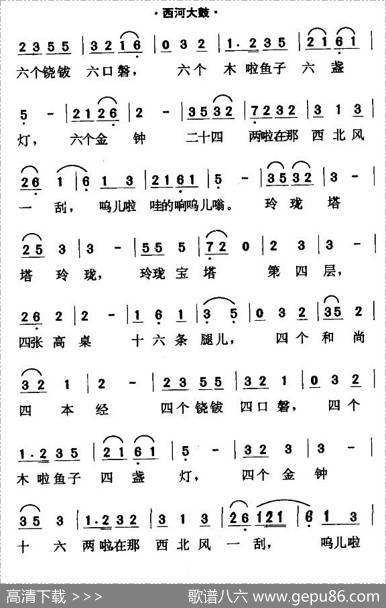 ·西河大鼓·
2 3 5 5 | 3 2 1 6 | 0 3 2 | 1·2 3 5 | 2 1 6 1 |
六个铙钹 六口磬， 六个 木啦鱼子 六盏
5 - | 2 1 2 6 | 2 - | 3 5 3 2 | 7 2 3 2 | 3 1 3 |
灯， 六个金钟 二十四 两啦在那 西北风
2 6 1 | 6 1 3 | 2 1 6 1 | 5 - | 3 5 3 2 |
一刮， 呜儿啦 哇的响呜儿嗡。 玲珑塔
2 5 3 | 3 - | 5 5 5 | 7 2 0 | 2 3 | 3 - |
塔玲珑， 玲珑宝塔 第四层，
2 6 2 | 2 - | 1 6 1 | 3 5 | 0 3 2 | 3 5 2 |
四张高桌 十六条腿儿， 四个和尚
3 2 1 | 2 - | 2 3 5 5 | 3 2 1 | 0 3 2 |
四本经 四个铙钹 四口磬， 四个
1·2 3 5 | 2 1 6 1 | 5 - | 3 2 3 | 3 - |
木啦鱼子 四盏灯， 四个金钟
3 5 3 | 1·2 3 2 | 3 1 3 | 2 6 1 2 1 | 6 1 3 |
十六 两啦在那 西北风 一刮， 呜儿啦
高清下载 >>> 歌谱八六 www.gepu86.com